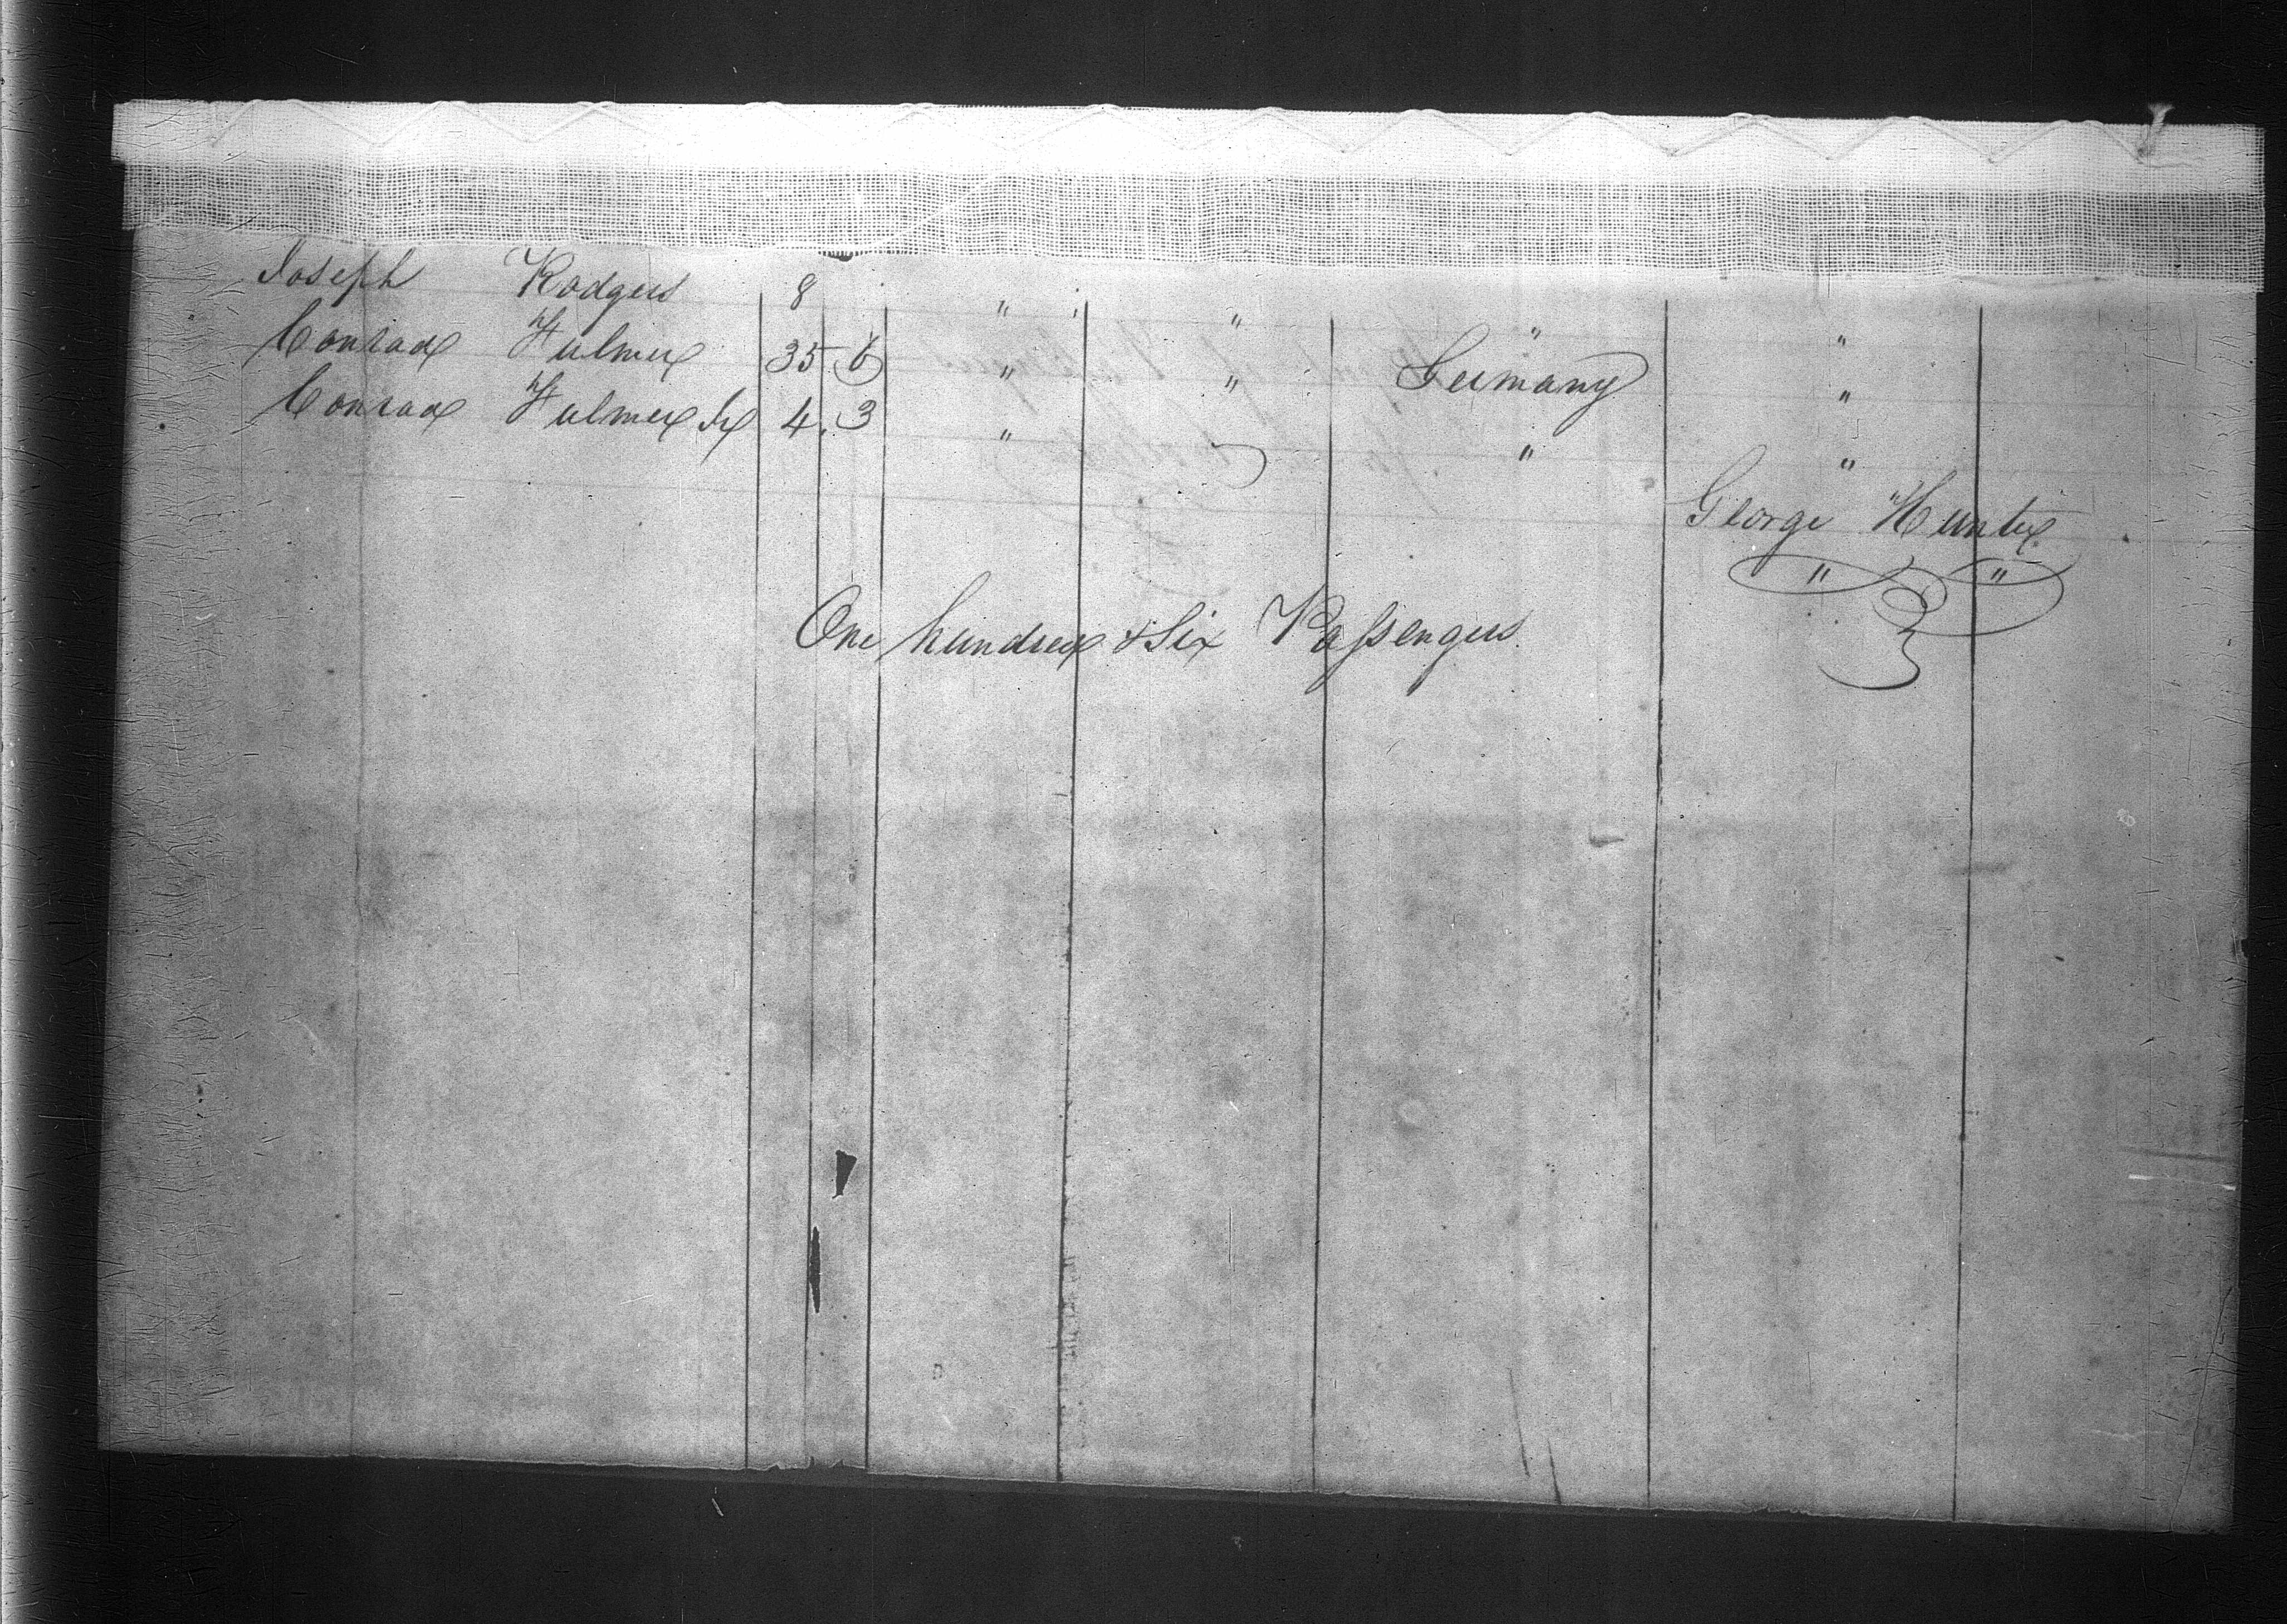 Joseph Rodgers 8 " " " "
Conrad Fulmer 35. 6 " " Germany "
Conrad Fulmer Jr 4. 3 " " "
George Hunter
" "
One hundred & Six Passengers